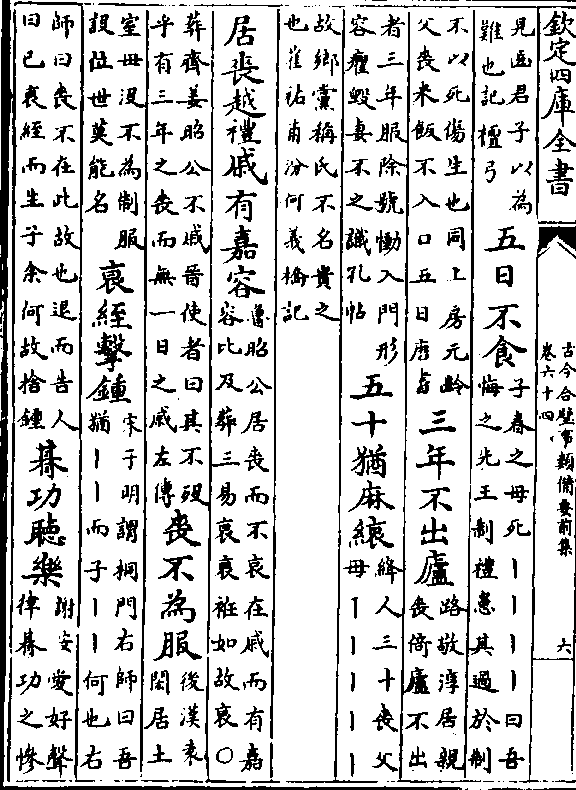 欽定四庫全書
古今合璧事類備要前集
卷六十四
六
見齒君子以為
難也記檀弓
五日不食
子春之母死丨丨丨丨曰吾
悔之先王制禮患其過於制
不以死傷生也同上房元齡
父喪米飯不入口五日唐書
三年不出廬
路敬淳居親
喪倚廬不出
者三年服除號慟入門形
容癯毀妻不之識孔帖
五十猶麻縗
絳人三十喪父
母丨丨丨丨丨
故鄉黨稱氏不名貴之
也崔祐甫汾何義橋記
居喪越禮戚有嘉容
魯昭公居喪而不哀在戚而有嘉
容比及葬三易衰衰衽如故衰〇
葬齊姜昭公不戚晉使者曰其不殁
乎有三年之喪而無一日之戚左傳
喪不為服
後漢來
閑居土
室母没不為制服
設位世莫能名
衰絰擊鍾
宋子明謂桐門右師曰吾
猶丨丨而子丨丨何也右
師曰喪不在此故也退而告人
曰已衰絰而生子余何故捨鍾
朞功聽樂
謝安愛好聲
律朞功之慘